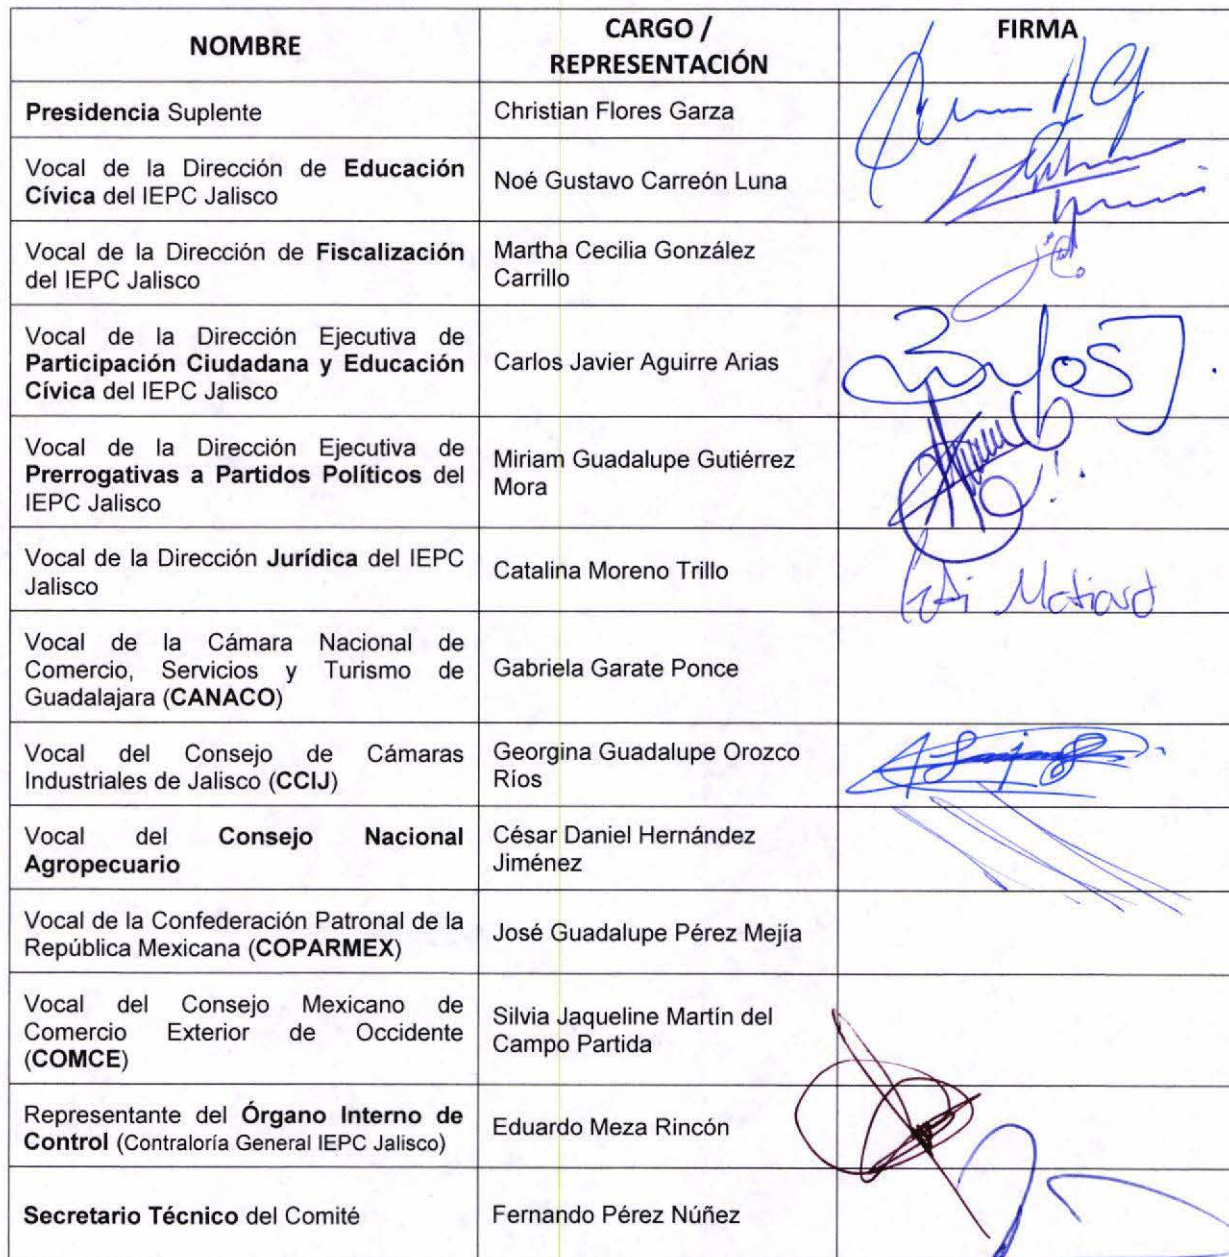 NOMBRE
CARGO /
REPRESENTACIÓN
FIRMA
Presidencia Suplente
Christian Flores Garza
Vocal de la Dirección de Educación
Cívica del IEPC Jalisco
Noé Gustavo Carreón Luna
Vocal de la Dirección de Fiscalización
del IEPC Jalisco
Martha Cecilia González
Carrillo
Vocal de la Dirección Ejecutiva de
Participación Ciudadana y Educación
Cívica del IEPC Jalisco
Carlos Javier Aguirre Arias
Vocal de la Dirección Ejecutiva de
Prerrogativas a Partidos Políticos del
IEPC Jalisco
Miriam Guadalupe Gutiérrez
Mora
Vocal de la Dirección Jurídica del IEPC
Jalisco
Catalina Moreno Trillo
Vocal de la Cámara Nacional de
Comercio, Servicios y Turismo de
Guadalajara (CANACO)
Gabriela Garate Ponce
Vocal del Consejo de Cámaras
Industriales de Jalisco (CCIJ)
Georgina Guadalupe Orozco
Ríos
Vocal del Consejo Nacional
Agropecuario
César Daniel Hernández
Jiménez
Vocal de la Confederación Patronal de la
República Mexicana (COPARMEX)
José Guadalupe Pérez Mejía
Vocal del Consejo Mexicano de
Comercio Exterior de Occidente
(COMCE)
Silvia Jaqueline Martín del
Campo Partida
Representante del Órgano Interno de
Control (Contraloría General IEPC Jalisco)
Eduardo Meza Rincón
Secretario Técnico del Comité
Fernando Pérez Núñez